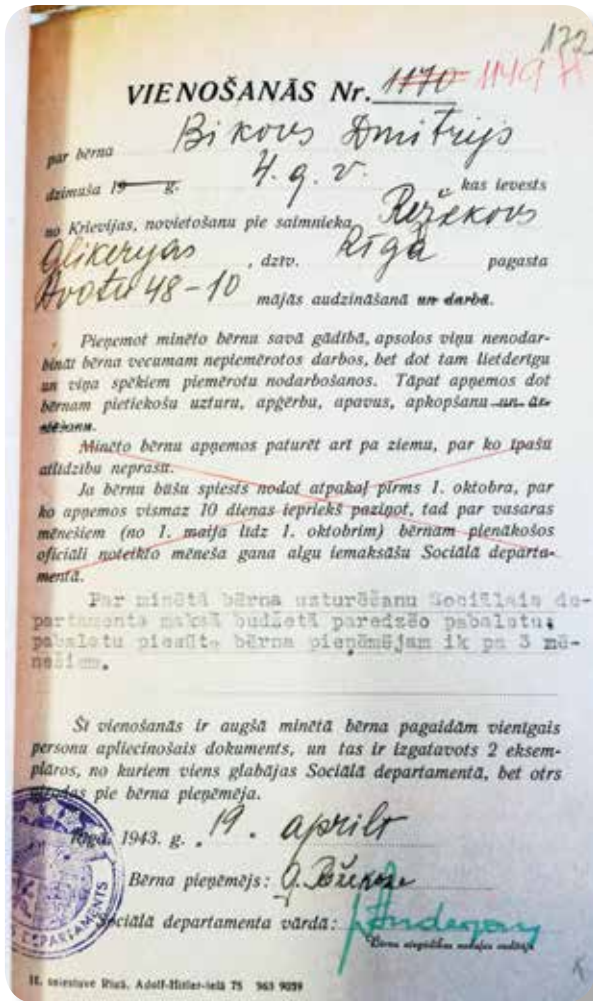 172
VIENOŠANĀS Nr. 1170 1149 A
par bērna Bikovs Dmitrijs
dzimuša 19 g. 4. g. v. kas ievests
no Krievijas, novietošanu pie saimnieka Režekovs
Glikeryas, dzīv. Rīgā pagasta
Avotu 48-10 mājās audzināšanā un darbā.
Pieņemot minēto bērnu savā gādībā, apsolos viņu nenodar-
bināt bērna vecumam nepiemērotos darbos, bet dot tam lietderīgu
un viņa spēkiem piemērotu nodarbošanos. Tāpat apņemos dot
bērnam pietiekošu uzturu, apģērbu, apavus, apkopšanu un ār-
stēšanu.
Minēto bērnu apņemos paturēt arī pa ziemu, par ko īpašu
atlīdzību neprasu.
Ja bērnu būšu spiests nodot atpakaļ pirms 1. oktobra, par
ko apņemos vismaz 10 dienas iepriekš paziņot, tad par vasaras
mēnešiem (no 1. maija līdz 1. oktobrim) bērnam pienākošos
oficiāli noteikto mēneša gana algu iemaksāšu Sociālā departa-
mentā.
Par minētā bērna uzturēšanu Sociālais de-
partaments maksā budžetā paredzēo pabalstu,
pabalstu piesūt. bērna pieņēmējam ik pa 3 mē-
nešiem.
Šī vienošanās ir augšā minētā bērna pagaidām vienīgais
personu apliecinošais dokuments, un tas ir izgatavots 2 eksem-
plāros, no kuriem viens glabājas Sociālā departamentā, bet otrs
pie bērna pieņēmēja.
Rīgā, 1943. g. 19. aprilī
Bērna pieņēmējs: G. Režekova
Sociālā departamenta vārdā: Anderson
Bērnu aizgādības nodaļas vadītājs
DEPARTAMENTS
spiestuve Rīgā, Adolf-Hitler-ielā 75 963 9059